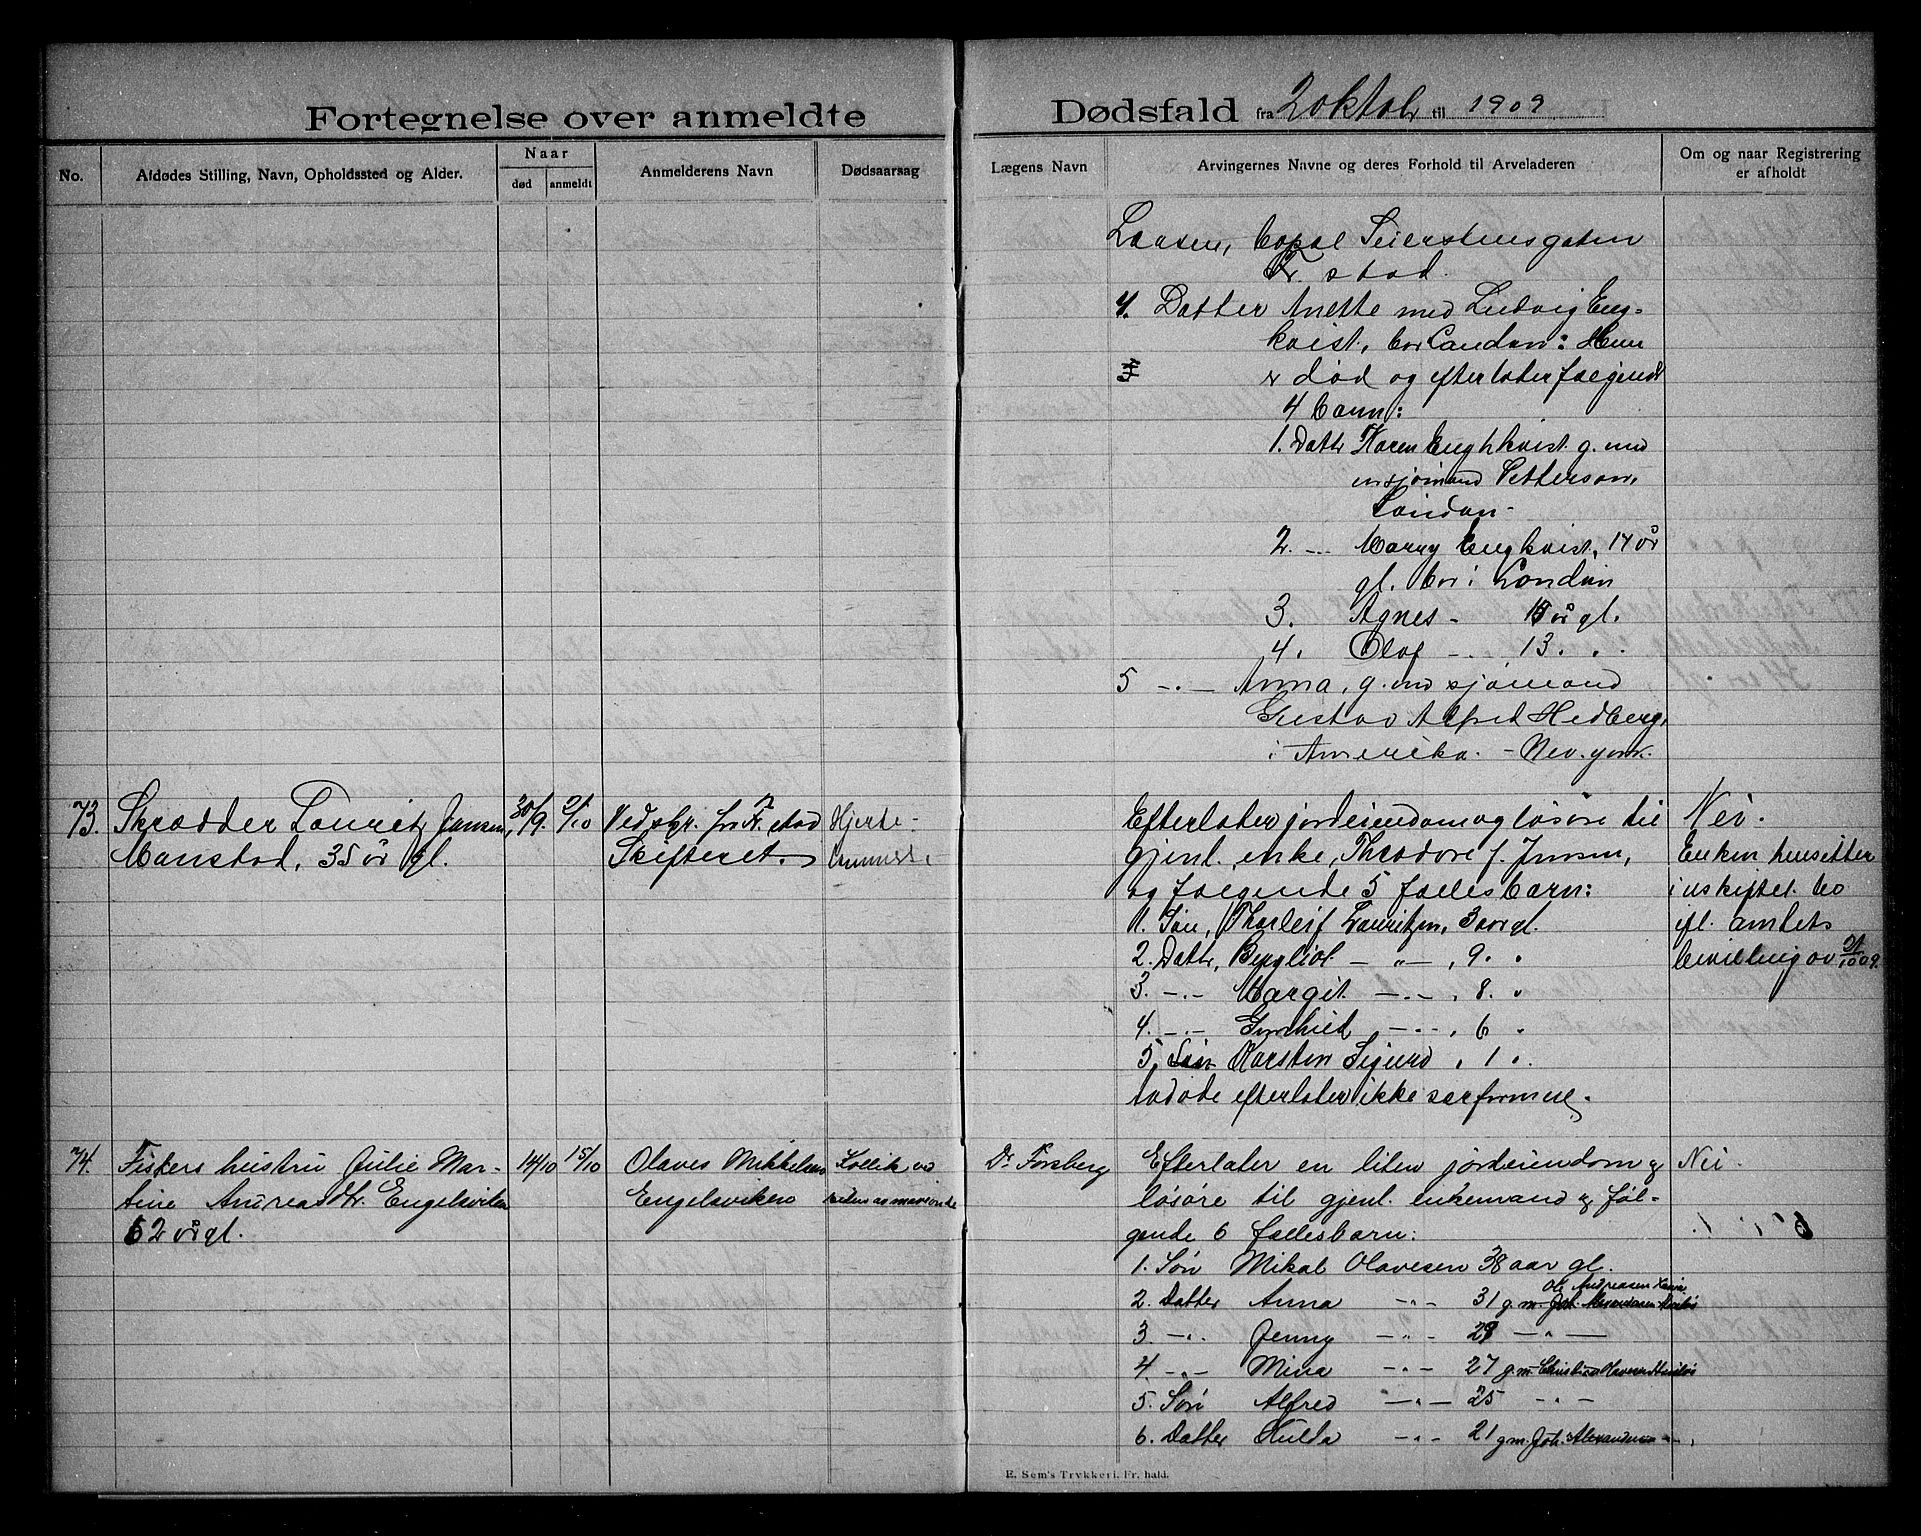 Fortegnelse over anmeldte Dødsfald fra 2 oktob til 1909
No.
Afdødes Stilling, Navn, Opholdssted og Alder.
Naar
død
anmeldt
Anmelderens Navn
Dødsaarsag
Lægens Navn
Arvingernes Navne og deres Forhold til Arveladeren
Om og naar Registrering
er afholdt
Seierstensgaten
Fr. stad.
4. Datter Anette med Ludvig Eng-
kvist, bor London: Hun
er død og efterlater følgende
4 barn:
1. Dattr Karen Enghkvist g. med
en sjømand Petterson,
London -
2. -.- Marry Engkvist, 17 år
gl. bor i London
3. Agnes - 15 år gl.
4. Olaf -.- 13. ..
5 -.- Anna, g. med sjømand
Gustav Alfred Hedberg,
i Amerika. - Nev. york.
73.
Skrædder Lauritz Jansen,
Manstad, 35 år gl.
30/9.
2/10
Vedsbr. fra Fr. stad
Skifteret.
Hjerte-
Efterlater jordeiendom og løsøre til
gjenl. enke, Theodore f. Jensen,
og følgende 5 fællesbarn:
1. Søn, Thorleif Lauritzen, 3 aar gl.
2. Dattr, Bergliot - „ - , 9. „
3. -.- Margit -.- , 8. „
4. -.- Gunhild -.- , 6 „
5. Søn Karsten Sigurd , 1 „
Avdøde efterlater ikke særformue.
Nei.
Enken hensitter
i uskiftet bo
ifl. amtets
bevilling av 21/10 09.
74.
Fiskers hustru Julie Mar-
tine Andreasdtr. Engelsviken
62 år gl.
14/10
15/10
Olaves Mikkelsen
Engelsviken
Kollik
Dr. Forsberg
Efterlater en liten jordeiendom og
løsøre til gjenl. enkemand og føl-
gende 6 fællesbarn:
1. Søn Mikal Olavesen 38 aar gl.
Ole Andreasen
2. Datter Anna -„- 31 g.m. Joh.
3. -„- Jenny -„- 29 -„-
4. -„- Mina -„- 27 g.m. Christian
5. Søn Alfred -„- 25 -„-
6. Datter Hulda -„- 21 g.m. Joh. Alexandersen -„-
Nei.
E. Sem's Trykkeri. Fr. hald.